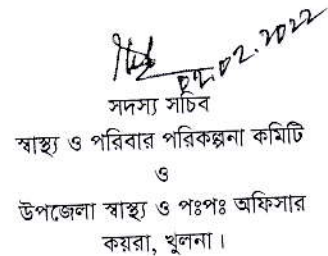 ০২.০২.২০২২
সদস্য সচিব
স্বাস্থ্য ও পরিবার পরিকল্পনা কমিটি
ও
উপজেলা স্বাস্থ্য ও পঃপঃ অফিসার
কয়রা, খুলনা।